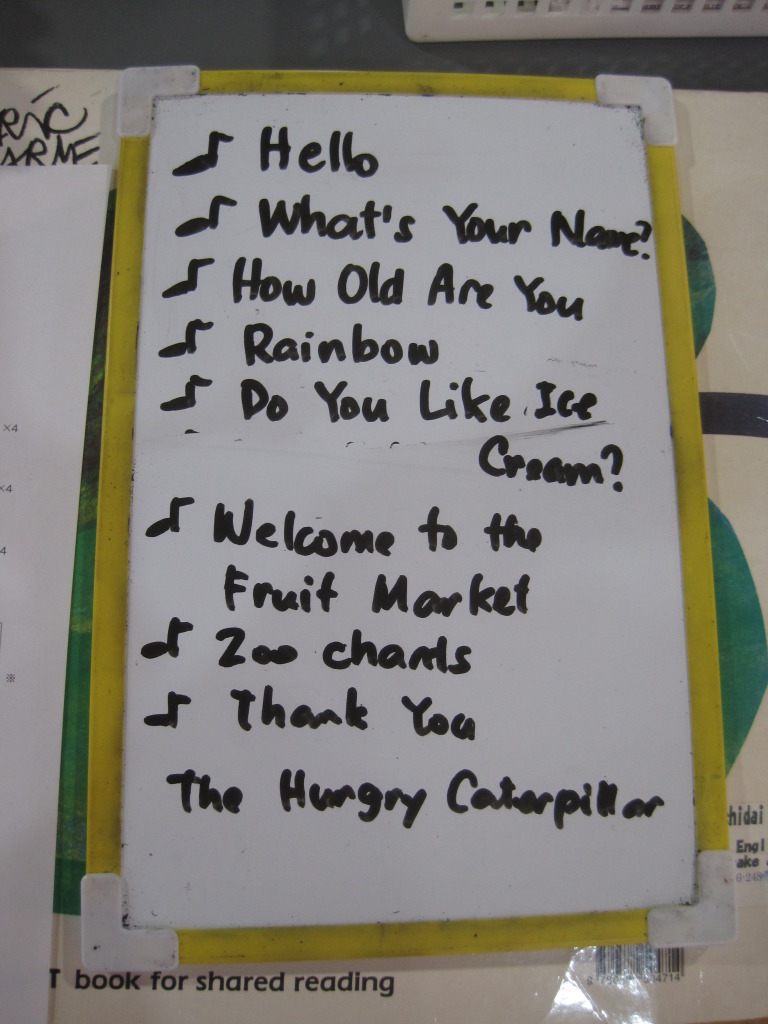 ERIC
CARNE
♪ Hello
♪ What's Your Name?
♪ How Old Are You
♪ Rainbow
♪ Do You Like Ice
Cream?
♪ Welcome to the
Fruit Market
♪ Zoo chants
♪ Thank You
The Hungry Caterpillar
×4
×4
4
※
hidai
Engl
ake
6-248
T book for shared reading